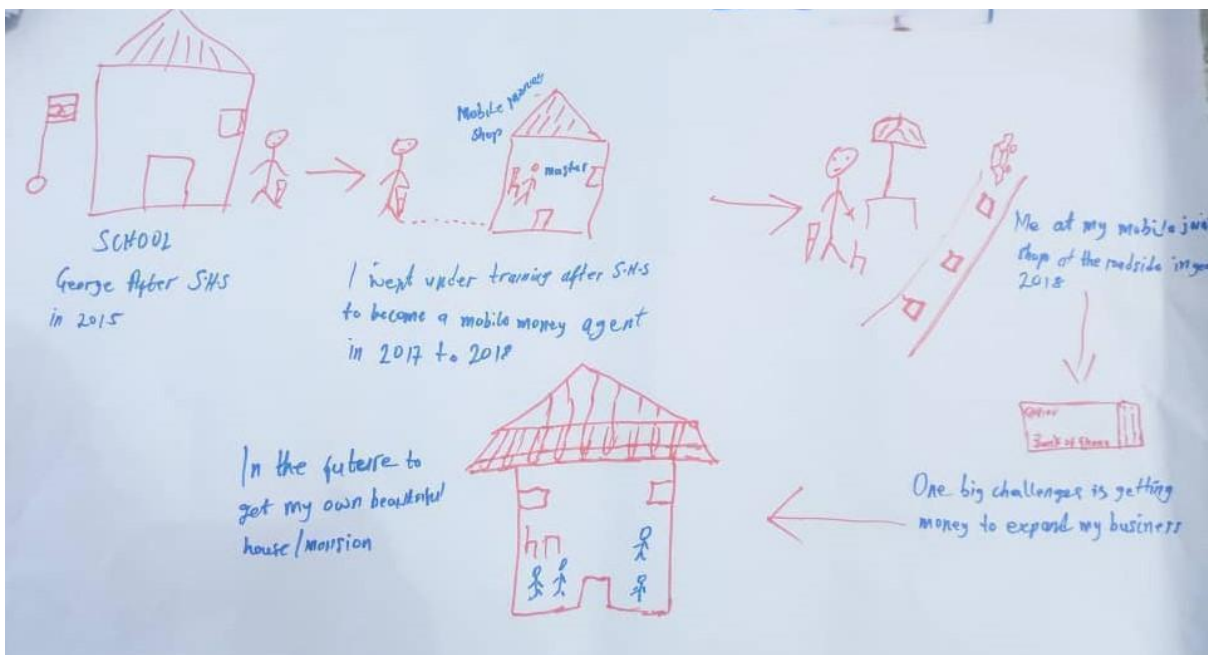 SCHOOL
George After S.H.S
in 2015
Mobile Money
shop
master
I went under training after S.H.S
to become a mobile money agent
in 2017 to 2018
Me at my mobile
shop at the roadside in
2018
Bank of Ghana
One big challenges is getting
money to expand my business
In the future to
get my own beautiful
house/mansion